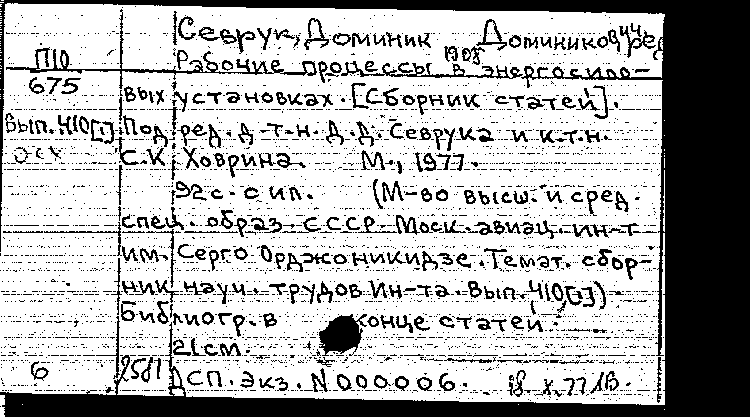 Севрук, Доминик Доминикович, ред.
1908
П10
675
Рабочие процессы в энергосило-
вых установках. [Сборник статей].
Вып. 410[1]
Под ред. д-т-н. Д.Д. Севрука и к.т.н.
С.К. Ховрина. М., 1977.
92 с. с ил. (М-во высш. и сред.
спец. образ. СССР. Моск. авиац. ин-т
им. Серго Орджоникидзе. Темат. сбор-
ник науч. трудов Ин-та. Вып. 410[1]).
Библиогр. в конце статей.
21 см.
6
2581
ДСП. Экз. N 000006.